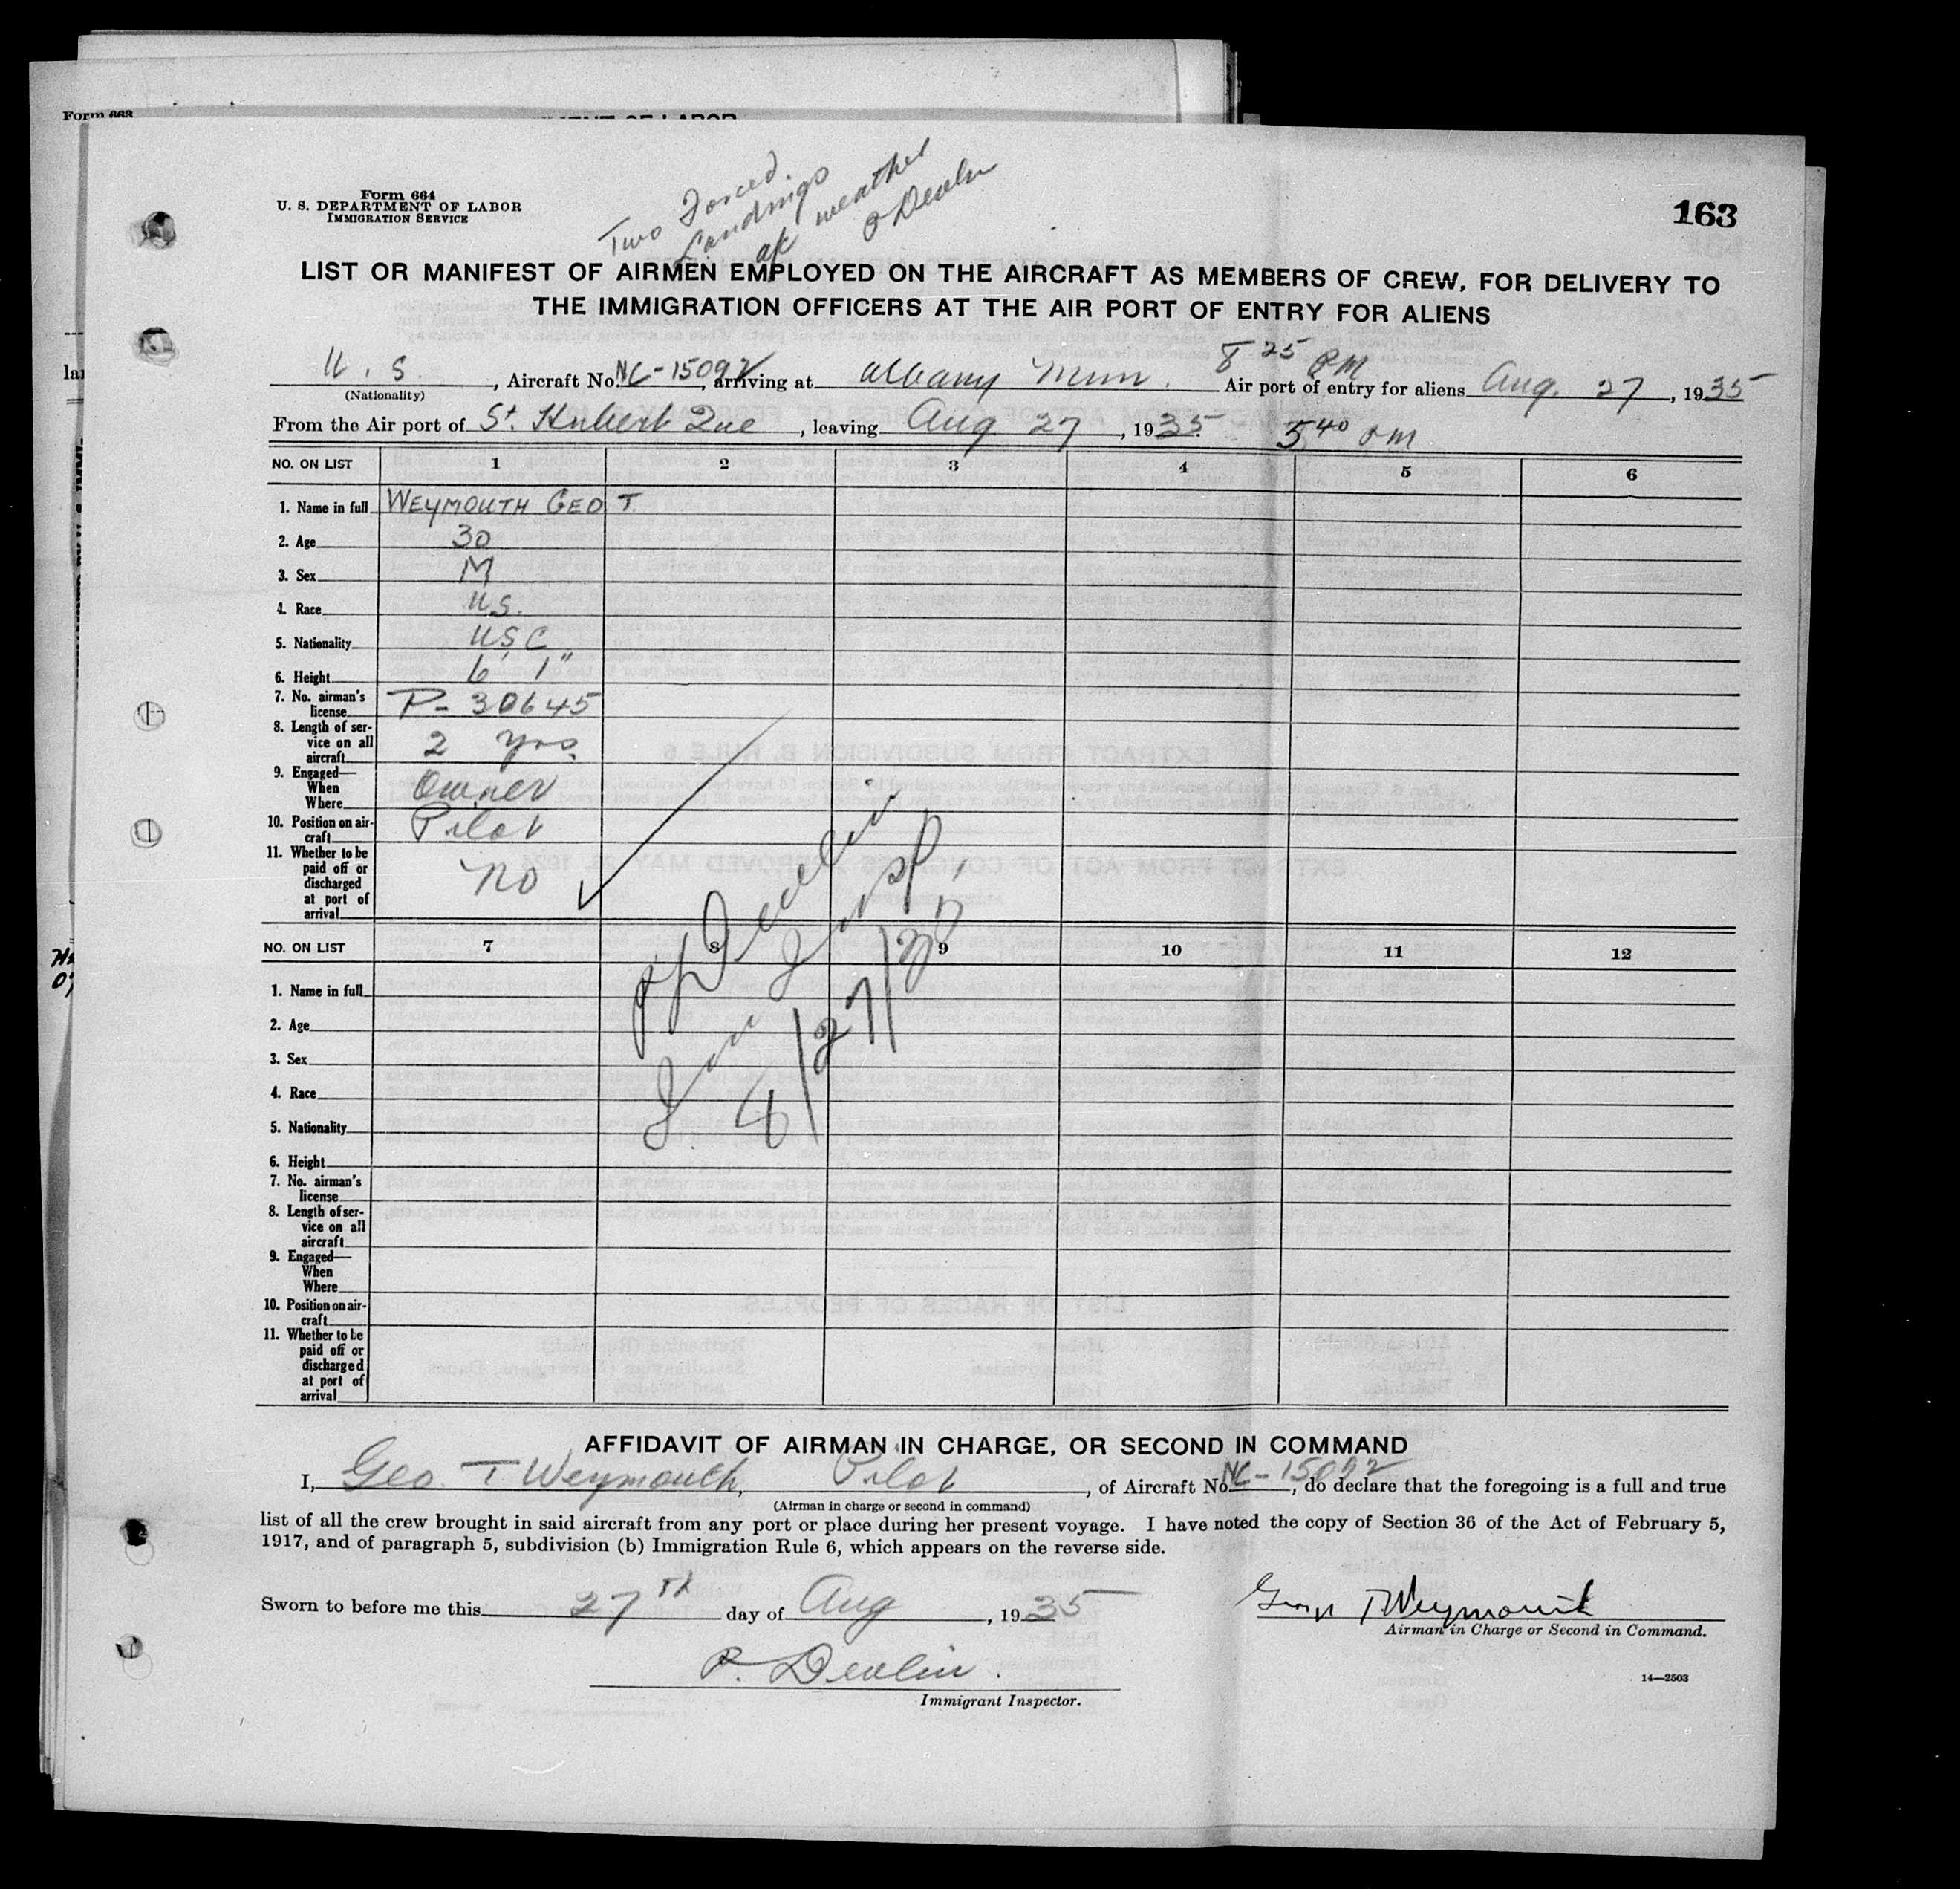 Form 663
MENT OF LABOR
Form 664
U. S. DEPARTMENT OF LABOR
IMMIGRATION SERVICE
Two Forced
Landings
a/c weather
P Devlin
163
LIST OR MANIFEST OF AIRMEN EMPLOYED ON THE AIRCRAFT AS MEMBERS OF CREW, FOR DELIVERY TO
THE IMMIGRATION OFFICERS AT THE AIR PORT OF ENTRY FOR ALIENS
U. S., Aircraft No. NC-15092, arriving at Albany Mun. 8 25 PM Air port of entry for aliens Aug. 27, 1935
(Nationality)
From the Air port of St. Hubert Que, leaving Aug 27, 1935. 5 40 PM
NO. ON LIST 1 2 3 4 5 6
1. Name in full WEYMOUTH GEO T.
2. Age 30
3. Sex M
4. Race U.S.
5. Nationality USC
6. Height 6' 1"
7. No. airman's
license P-30645
8. Length of ser-
vice on all
aircraft 2 yrs.
9. Engaged—
When
Where Owner
10. Position on air-
craft Pilot
11. Whether to be
paid off or
discharged
at port of
arrival No
P Devlin
Insp.
NO. ON LIST 7 8 9 10 11 12
1. Name in full
2. Age
3. Sex
4. Race
5. Nationality
6. Height
7. No. airman's
license
8. Length of ser-
vice on all
aircraft
9. Engaged—
When
Where
10. Position on air-
craft
11. Whether to be
paid off or
discharged
at port of
arrival
AFFIDAVIT OF AIRMAN IN CHARGE, OR SECOND IN COMMAND
I, Geo. T Weymouth, Pilot, of Aircraft No. NC-15092, do declare that the foregoing is a full and true
(Airman in charge or second in command)
list of all the crew brought in said aircraft from any port or place during her present voyage. I have noted the copy of Section 36 of the Act of February 5,
1917, and of paragraph 5, subdivision (b) Immigration Rule 6, which appears on the reverse side.
Sworn to before me this 27th day of Aug, 1935
George T Weymouth
Airman in Charge or Second in Command.
P. Devlin.
Immigrant Inspector.
14—2503